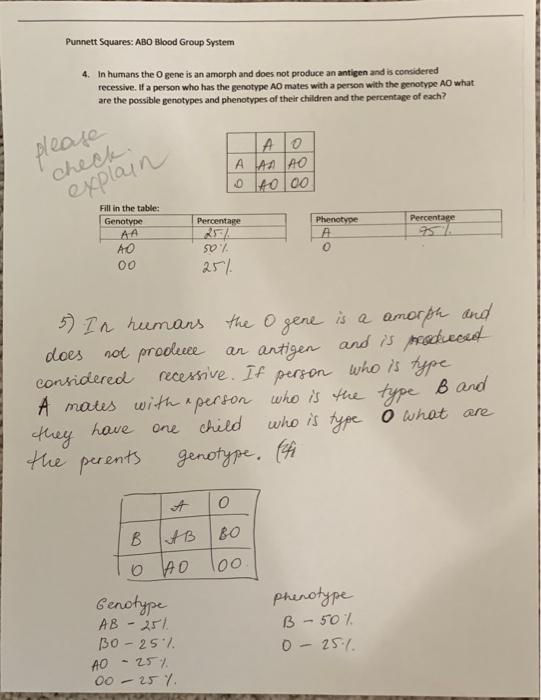 Punnett Squares: ABO Blood Group System
4. In humans the O gene is an amorph and does not produce an antigen and is considered
recessive. If a person who has the genotype AO mates with a person with the genotype AO what
are the possible genotypes and phenotypes of their children and the percentage of each?
please
check.
explain
A O
A AA AO
O AO OO
Fill in the table:
Genotype Percentage Phenotype Percentage
AA 25% A 95%
AO 50% O
OO 25%
5) In humans the O gene is a amorph and
does not produce an antigen and is
considered recessive. If person who is type
A mates with a person who is the type B and
they have one child who is type O what are
the perents genotype.
A O
B AB BO
O AO OO
Genotype phenotype
AB - 25% B - 50%
BO - 25% O - 25%
AO - 25%
OO - 25%